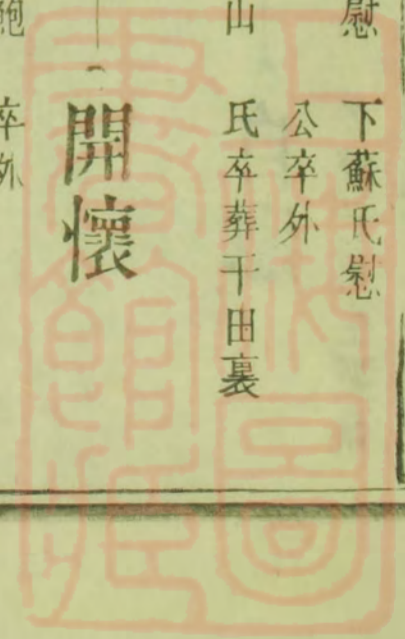 慰　下蘇氏慰
公卒外
山　氏卒葬干田裏
開懷
卒外